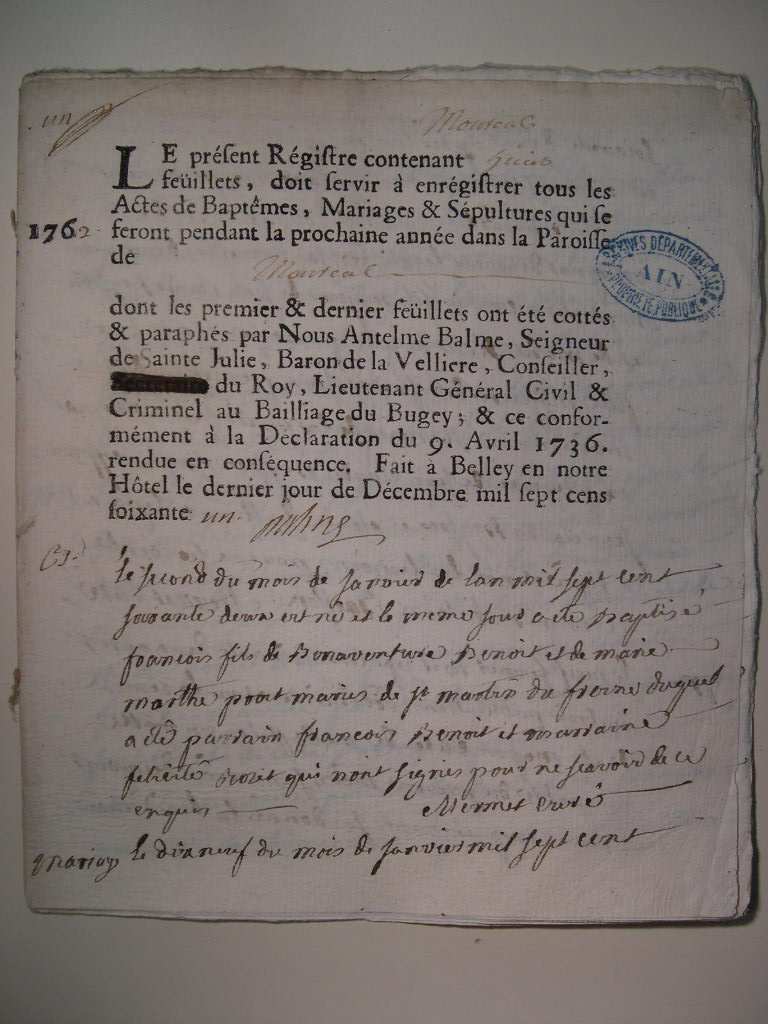 un
Montréal
LE préſent Régiſtre contenant
feüillets, doit ſervir à enrégiſtrer tous les
Actes de Baptêmes, Mariages & Sépultures qui ſe
1762 feront pendant la prochaine année dans la Paroiſſe
de
Montréal
ARCHIVES DÉPARTEMENTALES
AIN
PROPRIÉTÉ PUBLIQUE
dont les premier & dernier feüillets ont été cottés
& paraphés par Nous Antelme Balme, Seigneur
de Sainte Julie, Baron de la Velliere, Conſeiller,
du Roy, Lieutenant Général Civil &
Criminel au Bailliage du Bugey; & ce confor-
mément à la Déclaration du 9. Avril 1736.
rendue en conſéquence. Fait à Belley en notre
Hôtel le dernier jour de Décembre mil ſept cens
ſoixante un
le second du mois de janvier de lan mil sept cent
soixante deux est né et le meme jour a eté baptisé
francois fils de Bonaventure Benoit et de marie
marthe poret mariés de st martin du fresne duquel
a eté parrain francois Benoit et marraine
felicité qui nont signes pour ne scavoir de ce
enquis Mermet curé
le dixneuf du mois de janvier mil sept cent